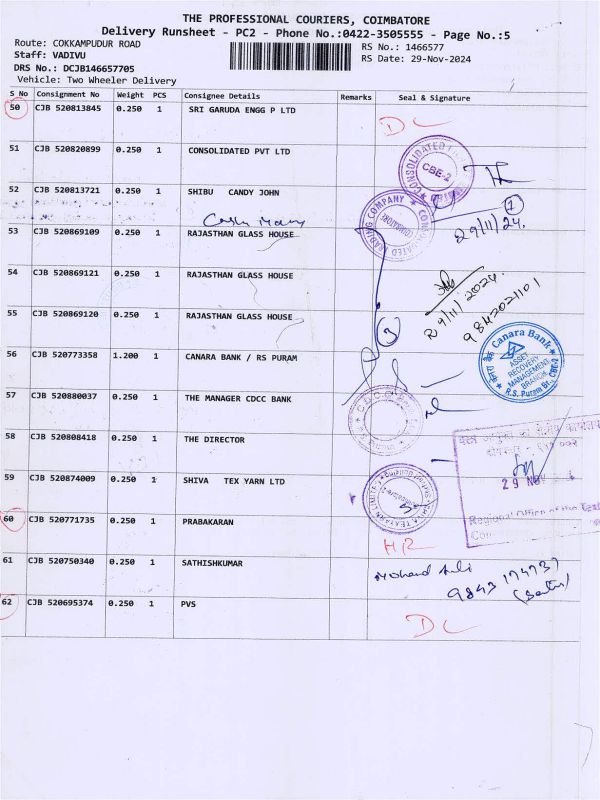 THE PROFESSIONAL COURIERS, COIMBATORE
Delivery Runsheet - PC2 - Phone No.:0422-3505555 - Page No.:5
Route: COKKAMPUDUR ROAD
RS No.: 1466577
Staff: VADIVU
RS Date: 29-Nov-2024
DRS No.: DCJB146657705
Vehicle: Two Wheeler Delivery
S No Consignment No Weight PCS Consignee Details Remarks Seal & Signature
50 CJB 520813845 0.250 1 SRI GARUDA ENGG P LTD
DL
51 CJB 520820899 0.250 1 CONSOLIDATED PVT LTD
CBE-2
52 CJB 520813721 0.250 1 SHIBU CANDY JOHN
TRADING COMPANY ★ CONSOLIDATED
1
29/11/24.
53 CJB 520869109 0.250 1 RAJASTHAN GLASS HOUSE
54 CJB 520869121 0.250 1 RAJASTHAN GLASS HOUSE
29/11/2024.
9842021101
55 CJB 520869120 0.250 1 RAJASTHAN GLASS HOUSE
3
Canara Bank
ASSET
RECOVERY
MANAGEMENT
BRANCH
R.S. Puram Br., CBE-2
56 CJB 520773358 1.200 1 CANARA BANK / RS PURAM
57 CJB 520880037 0.250 1 THE MANAGER CDCC BANK
58 CJB 520808418 0.250 1 THE DIRECTOR
29 NOV
Regional Office of the
59 CJB 520874009 0.250 1 SHIVA TEX YARN LTD
60 CJB 520771735 0.250 1 PRABAKARAN
HR
61 CJB 520750340 0.250 1 SATHISHKUMAR
9843174737
62 CJB 520695374 0.250 1 PVS
DL